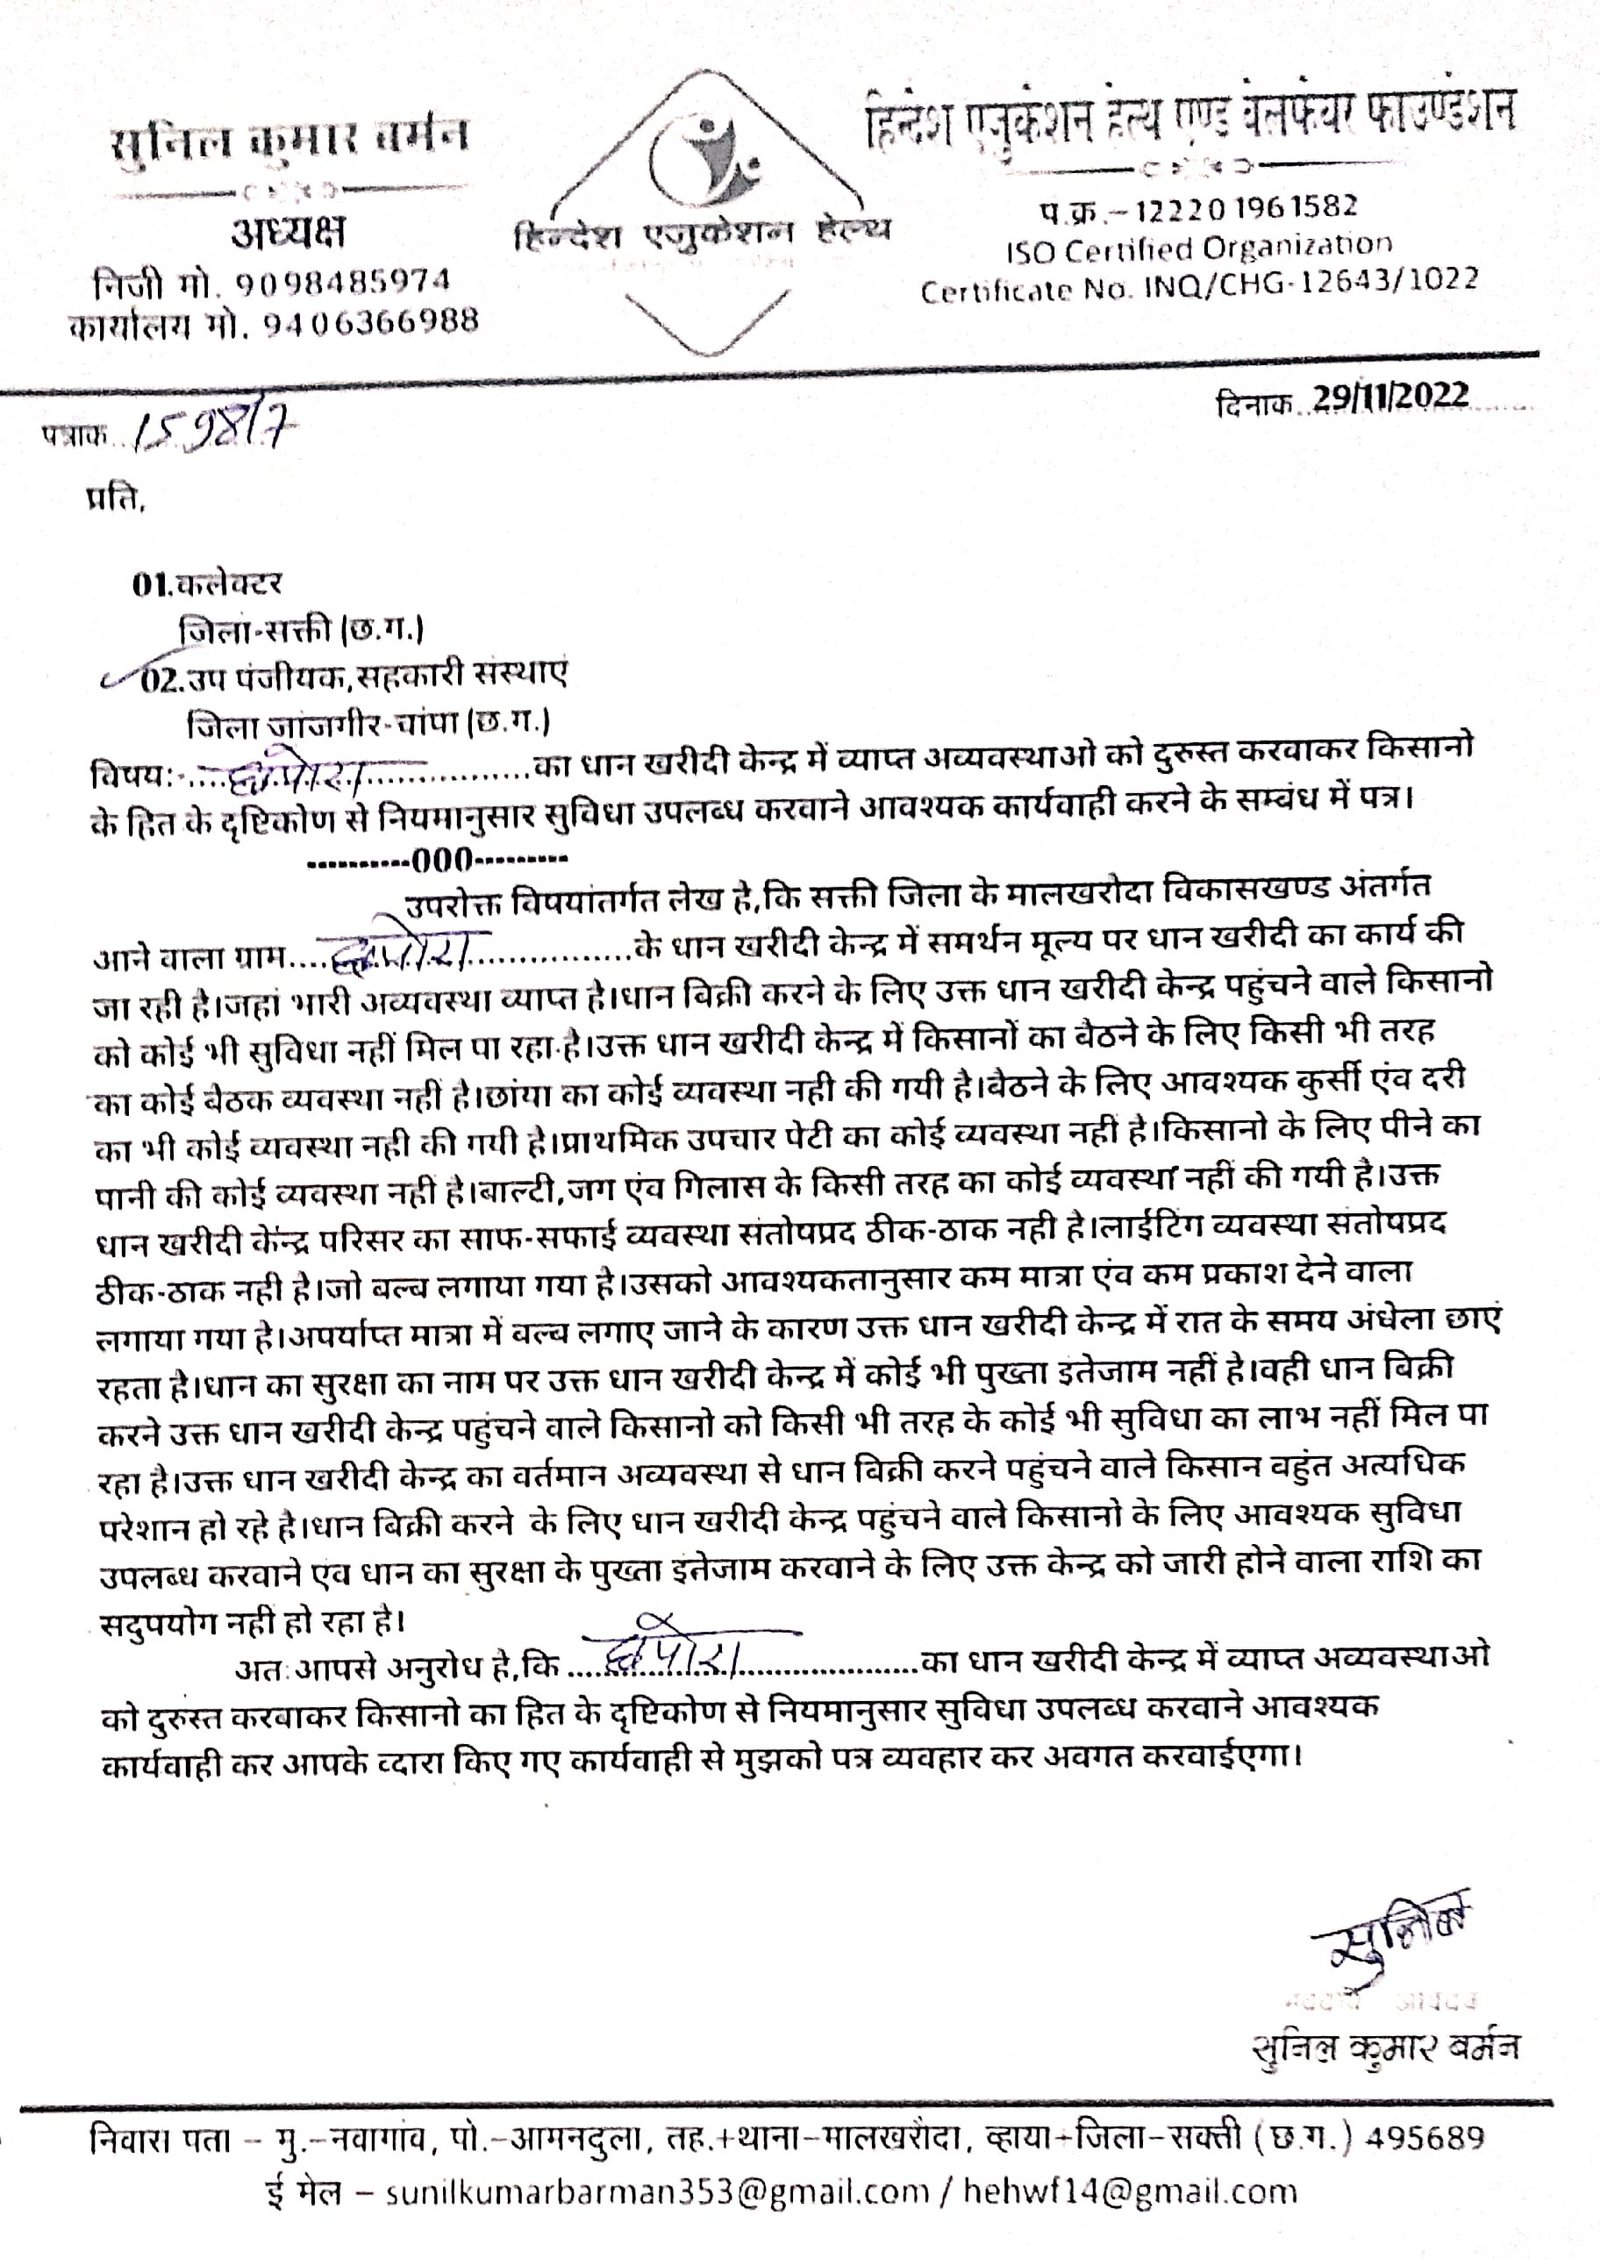 सुनिल कुमार बर्मन
अध्यक्ष
निजी मो. 9098485974
कार्यालय मो. 9406366988
हिन्देश एजुकेशन हेल्थ
हिन्देश एजुकेशन हेल्थ एण्ड वेलफेयर फाउण्डेशन
प.क्र.– 12220 1961582
ISO Certified Organization
Certificate No. INQ/CHG-12643/1022
पत्राक..1598/7
दिनाक..29/11/2022
प्रति,
01.कलेक्टर
जिला-सक्ती (छ.ग.)
02.उप पंजीयक,सहकारी संस्थाएं
जिला जांजगीर-चांपा (छ.ग.)
विषय:-....छपोरा..................का धान खरीदी केन्द्र में व्याप्त अव्यवस्थाओ को दुरुस्त करवाकर किसानो
के हित के दृष्टिकोण से नियमानुसार सुविधा उपलब्ध करवाने आवश्यक कार्यवाही करने के सम्बंध में पत्र।
----------000---------
उपरोक्त विषयांतर्गत लेख है,कि सक्ती जिला के मालखरोदा विकासखण्ड अंतर्गत
आने वाला ग्राम....छपोरा..................के धान खरीदी केन्द्र में समर्थन मूल्य पर धान खरीदी का कार्य की
जा रही है।जहां भारी अव्यवस्था व्याप्त है।धान विक्री करने के लिए उक्त धान खरीदी केन्द्र पहुंचने वाले किसानो
को कोई भी सुविधा नहीं मिल पा रहा है।उक्त धान खरीदी केन्द्र में किसानों का बैठने के लिए किसी भी तरह
का कोई बैठक व्यवस्था नहीं है।छांया का कोई व्यवस्था नही की गयी है।बैठने के लिए आवश्यक कुर्सी एंव दरी
का भी कोई व्यवस्था नही की गयी है।प्राथमिक उपचार पेटी का कोई व्यवस्था नहीं है।किसानो के लिए पीने का
पानी की कोई व्यवस्था नहीं है।बाल्टी,जग एंव गिलास के किसी तरह का कोई व्यवस्था नहीं की गयी है।उक्त
धान खरीदी केन्द्र परिसर का साफ-सफाई व्यवस्था संतोषप्रद ठीक-ठाक नही है।लाईटिंग व्यवस्था संतोषप्रद
ठीक-ठाक नही है।जो बल्ब लगाया गया है।उसको आवश्यकतानुसार कम मात्रा एंव कम प्रकाश देने वाला
लगाया गया है।अपर्याप्त मात्रा में वल्ब लगाए जाने के कारण उक्त धान खरीदी केन्द्र में रात के समय अंधेला छाएं
रहता है।धान का सुरक्षा का नाम पर उक्त धान खरीदी केन्द्र में कोई भी पुख्ता इंतेजाम नहीं है।वही धान बिक्री
करने उक्त धान खरीदी केन्द्र पहुंचने वाले किसानो को किसी भी तरह के कोई भी सुविधा का लाभ नहीं मिल पा
रहा है।उक्त धान खरीदी केन्द्र का वर्तमान अव्यवस्था से धान विक्री करने पहुंचने वाले किसान वहुंत अत्यधिक
परेशान हो रहे है।धान बिक्री करने के लिए धान खरीदी केन्द्र पहुंचने वाले किसानो के लिए आवश्यक सुविधा
उपलब्ध करवाने एंव धान का सुरक्षा के पुख्ता इंतेजाम करवाने के लिए उक्त केन्द्र को जारी होने वाला राशि का
सदुपयोग नही हो रहा है।
अतः आपसे अनुरोध है,कि ....छपोरा..................का धान खरीदी केन्द्र में व्याप्त अव्यवस्थाओ
को दुरुस्त करवाकर किसानो का हित के दृष्टिकोण से नियमानुसार सुविधा उपलब्ध करवाने आवश्यक
कार्यवाही कर आपके व्दारा किए गए कार्यवाही से मुझको पत्र व्यवहार कर अवगत करवाईएगा।
सुनिल
सुनिल कुमार बर्मन
निवास पता – मु.–नवागांव, पो.–आमनदुला, तह.+थाना–मालखरौदा, व्हाया+जिला–सक्ती (छ.ग.) 495689
ई मेल – sunilkumarbarman353@gmail.com / hehwf14@gmail.com